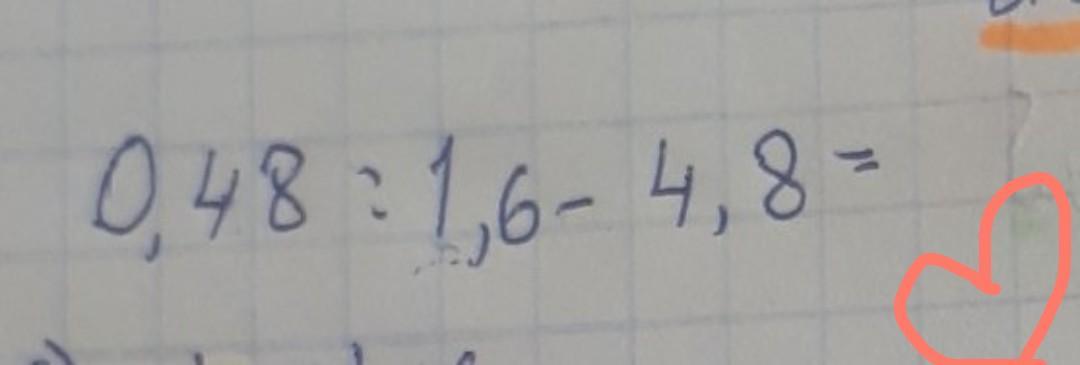 0,48 : 1,6 - 4,8 =